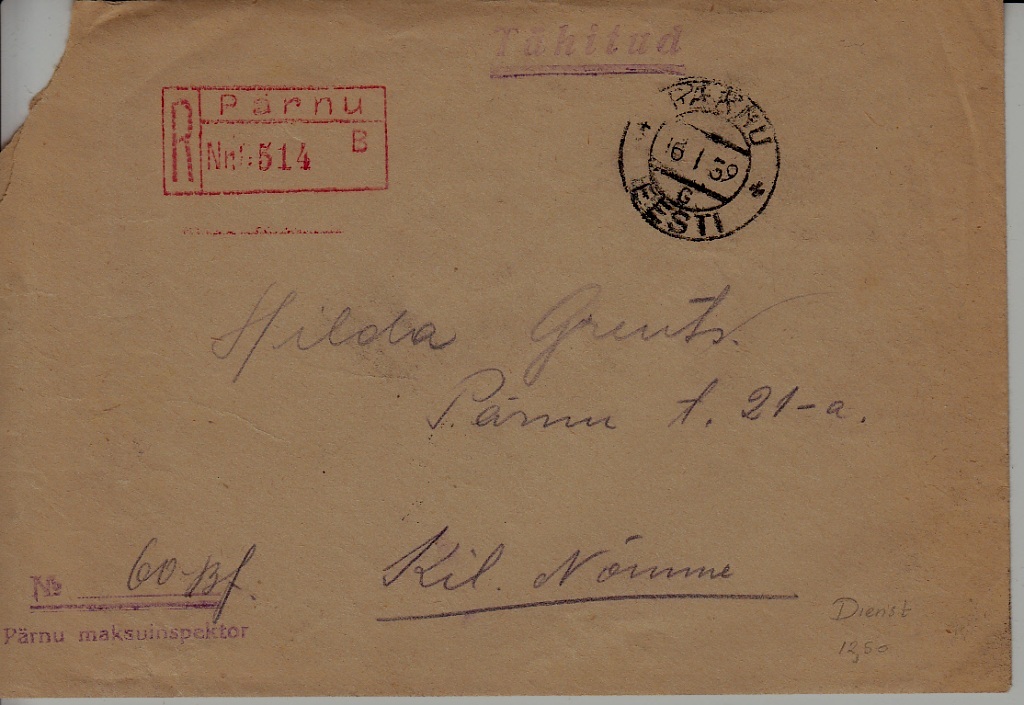 Tähitud
R Pärnu
Nr. 514 B
PÄRNU
6 I 39
G
EESTI
Hilda
Pärnu t. 21-a.
№ 60-
Kil. Nõmme
Pärnu maksuinspektor
Dienst
12,50